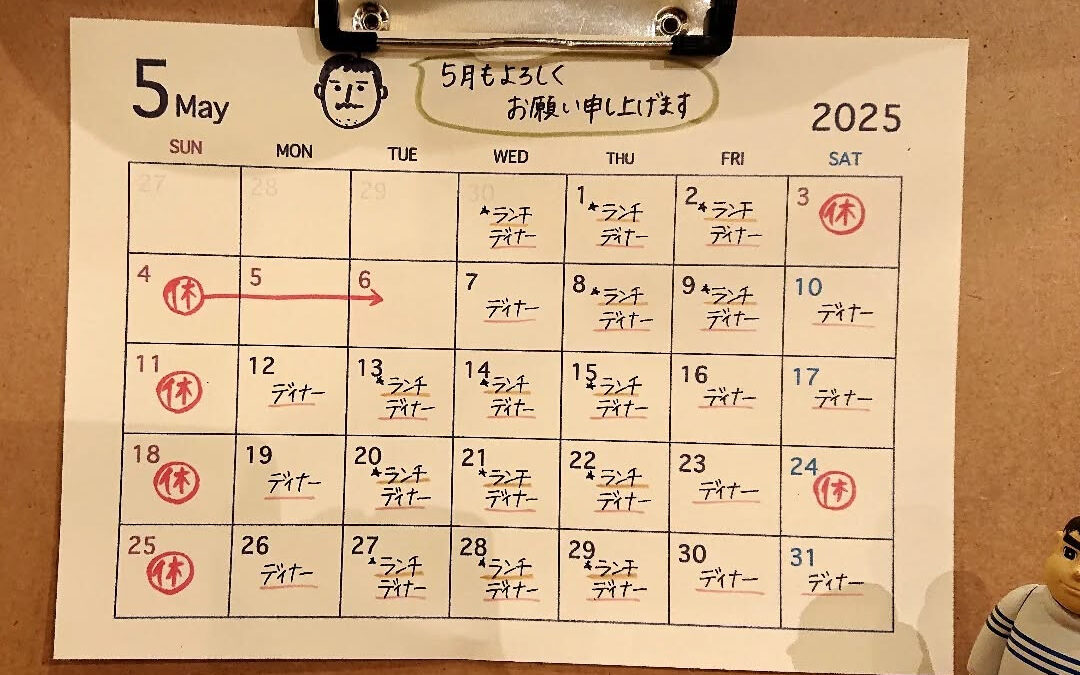 5 May
5月もよろしく
お願い申し上げます
2025
SUN MON TUE WED THU FRI SAT
27 28 29 30 1 2 3
★ランチ ★ランチ ★ランチ 休
ディナー ディナー ディナー
4 5 6 7 8 9 10
休 ディナー ★ランチ ★ランチ ディナー
ディナー ディナー
11 12 13 14 15 16 17
休 ディナー ★ランチ ★ランチ ★ランチ ディナー ディナー
ディナー ディナー ディナー
18 19 20 21 22 23 24
休 ディナー ★ランチ ★ランチ ★ランチ ディナー 休
ディナー ディナー ディナー
25 26 27 28 29 30 31
休 ディナー ★ランチ ★ランチ ★ランチ ディナー ディナー
ディナー ディナー ディナー